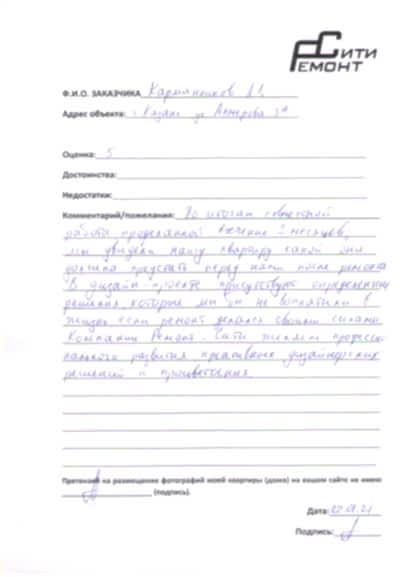 СИТИ
РЕМОНТ
Ф.И.О. ЗАКАЗЧИКА
Адрес объекта: г. Казань ул
Оценка: 5
Достоинства:
Недостатки:
Комментарий/пожелания: По итогам
работы проделанной в течение 2 месяцев,
мы увидели нашу квартиру какой она
должна предстать перед нами после ремонта
В дизайн проекте присутствуют определенные
решения которые мы бы не воплотили в
жизнь если ремонт делался своими силами
Компании Ремонт-Сити желаем професси-
нального развития креативных дизайнерских
решений и процветания
Претензий на размещение фотографий моей квартиры (дома) на вашем сайте не имею
(подпись).
Дата:
Подпись: